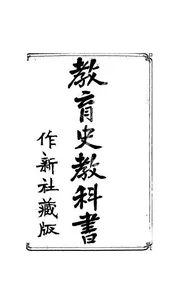 教育史教科書
作新社藏版